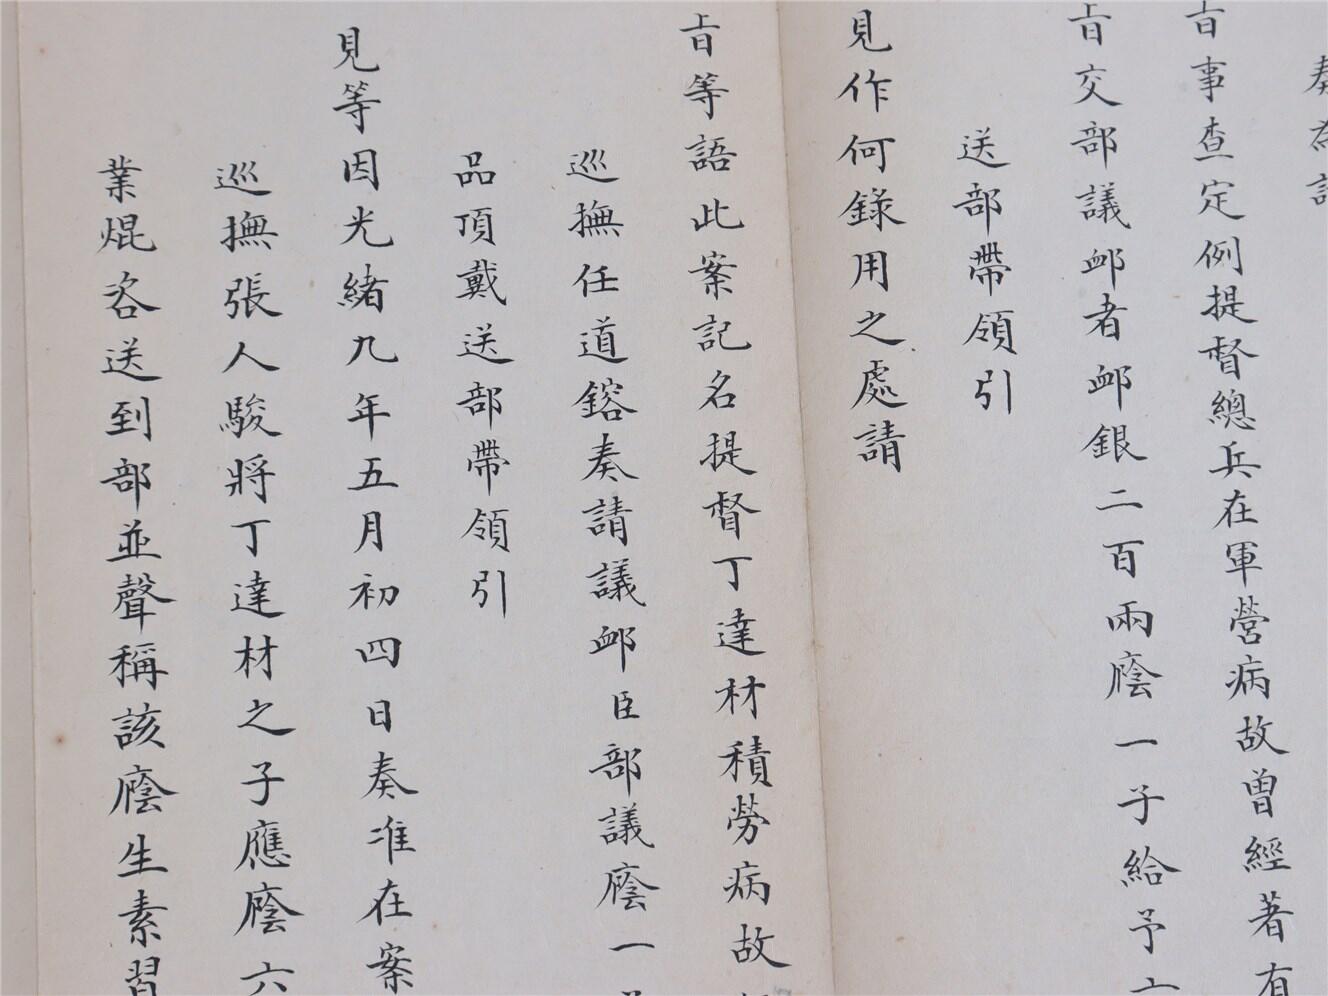 奏為
旨事查定例提督總兵在軍營病故曾經著有
旨交部議卹者卹銀二百兩廕一子給予六
送部帶領引
見作何錄用之處請
旨等語此案記名提督丁達材積勞病故
巡撫任道鎔奏請議卹臣部議廕一
品頂戴送部帶領引
見等因光緒九年五月初四日奏准在案
巡撫張人駿將丁達材之子應廕六
業焜咨送到部並聲稱該廕生素習